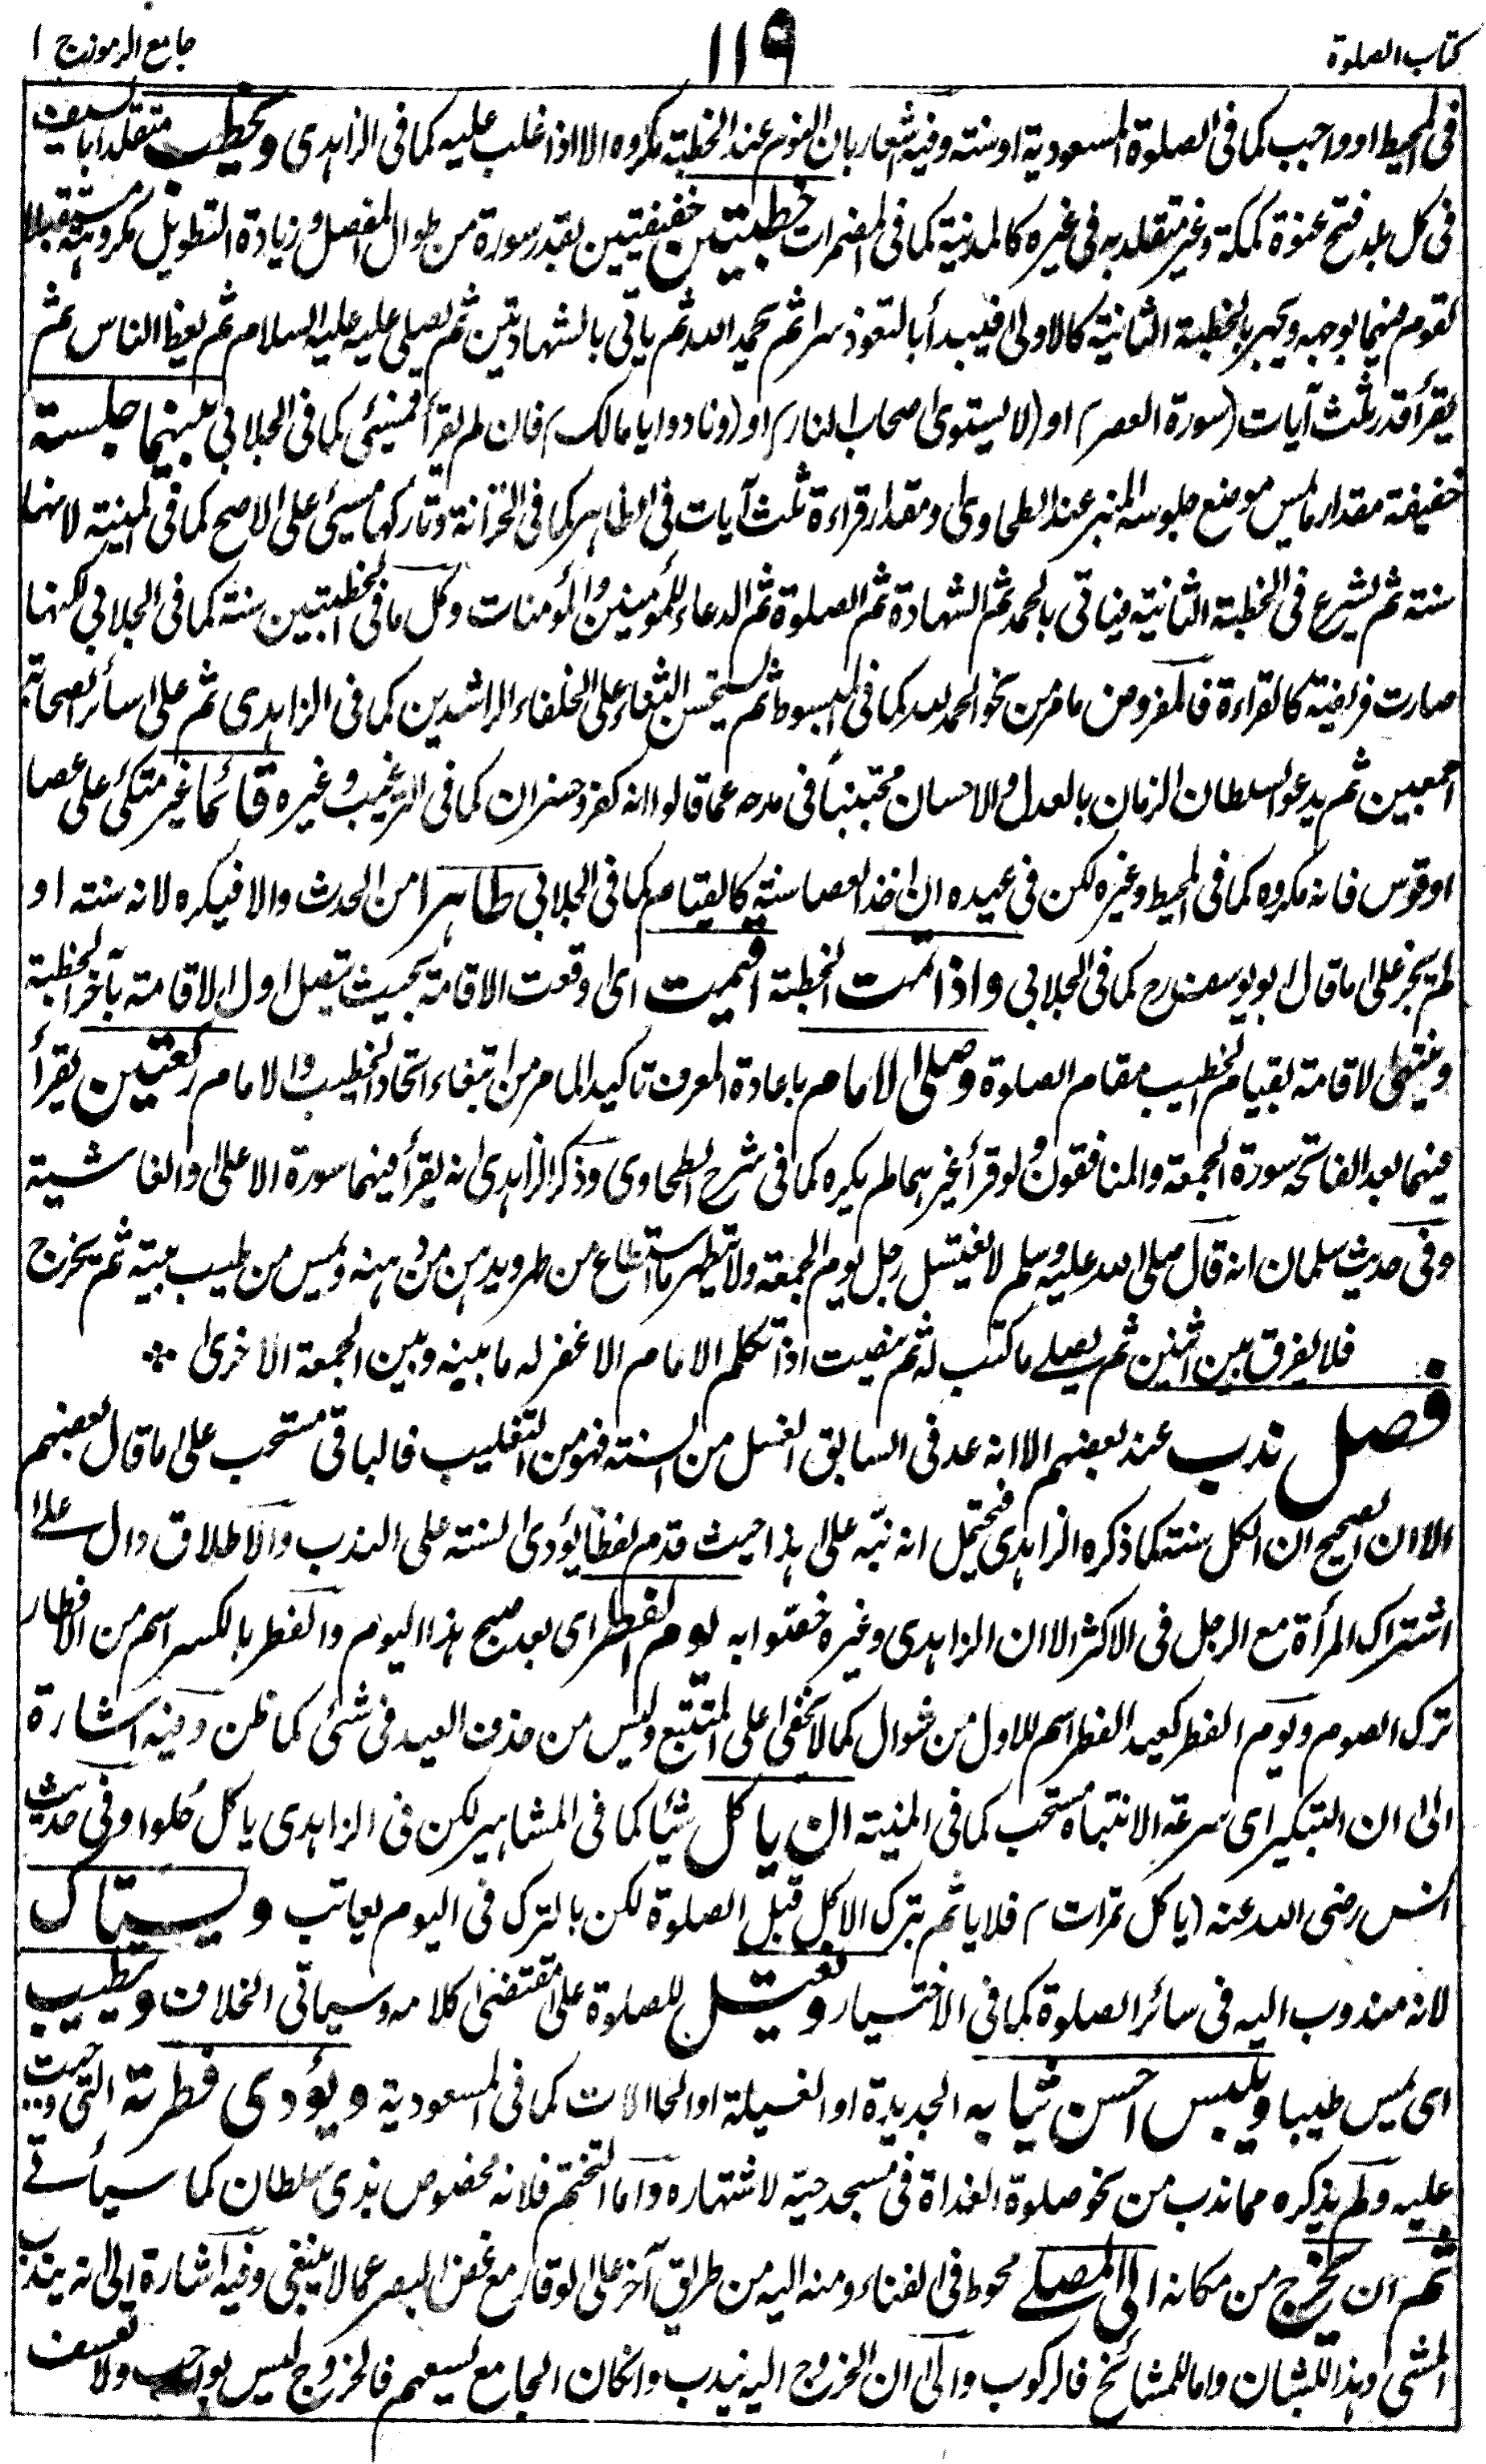 كتاب الصلوة
١١٩
جامع الرموز ج ١
فى المحيط او واجب كما فى الصلوة المسعودية او سنته وفيه اشعار بان النوم عند الخطبة مكروه الا اذا غلب عليه كما فى الزاهدى ويخطب متقلدا بالسيف
فى كل بلد فتح عنوة كمكة وغير متقلد به فى غيره كالمدينة كما فى المضمرات خطبتين خفيفتين بقدر سورة من طوال المفصل وزيادة التطويل مكروهة مستقبلا
لقوم منهما بوجهه ويجهر بالخطبة الثانية كالاولى فيبدأ بالتعوذ سرا ثم يحمد الله ثم ياتى بالشهادتين ثم يصلى عليه عليه السلام ثم يعظ الناس ثم
يقرأ قدر ثلث آيات (سورة العصر) او (لا يستوى اصحاب النار) او (ونادوا يا مالك) فان لم يقرأ فمسيئ كما فى الجلابى بينهما جلسة
خفيفة مقدار ما يمس موضع جلوسه المنبر عند الطحاوى ومقدار قراءة ثلث آيات فى الظاهر كما فى الخزانة وتاركها مسيئ على الاصح كما فى المنية لانها
سنة ثم يشرع فى الخطبة الثانية فياتى بالحمد ثم الشهادة ثم الصلوة ثم الدعاء للمؤمنين والمؤمنات وكل ما فى الخطبتين سنة كما فى الجلابى لكنها
صارت فريضة كالقراءة فالمفروض ما مر من نحو الحمد لله كما فى المبسوط ثم يستحسن الثناء على الخلفاء الراشدين كما فى الزاهدى ثم على سائر الصحابة
اجمعين ثم يدعو لسلطان الزمان بالعدل والاحسان مجتنبا فى مدحه عما قالوا انه كفر وخسران كما فى الترغيب وغيره قائما غير متكئ على عصا
او قوس فانه مكروه كما فى المحيط وغيره لكن فى عيده ان اخذ العصا سنة كالقيام كما فى الجلابى طاهرا من الحدث والا فيكره لانه سنته او
لم يجز على ما قال ابو يوسف رح كما فى الجلابى واذا تمت الخطبة اقيمت اى وقعت الاقامة بحيث يتصل اول الاقامة بآخر الخطبة
وينتهى الاقامة بقيام الخطيب مقام الصلوة وصلى الامام باعادة المعرف تاكيدا لما مر من ابتغاء اتحاد الخطيب والامام ركعتين يقرأ
فيهما بعد الفاتحة سورة الجمعة والمنافقون ولو قرأ غيرهما لم يكره كما فى شرح الطحاوى وذكر الزاهدى انه يقرأ فيهما سورة الاعلى والغاشية
وفى حديث سلمان انه قال صلى الله عليه وسلم لا يغتسل رجل يوم الجمعة ولا يتطهر ما استطاع من طهر ويدهن من دهنه ويمس من طيب بيته ثم يخرج
فلا يفرق بين اثنين ثم يصلے ما كتب له ثم ينصت اذا تكلم الامام الا غفر له ما بينه وبين الجمعة الاخرى
فصل ندب عند بعضهم الا انه عد فى السابق الغسل من السنة فهو من التغليب فالباقى مستحب على ما قال بعضهم
الا ان الصحيح ان الكل سنة كما ذكره الزاهدى فيحتمل انه نبّه على هذا حيث قدم لفظا يؤدى السنة على الندب والاطلاق دال علے
اشتراك المرأة مع الرجل فى الاكثر الا ان الزاهدى وغيره خصوا به يوم الفطر اى بعد صبح هذا اليوم والفطر بالكسر اسم من الافطار
ترك الصوم ويوم الفطر كعيد الفطر اسم للاول من شوال كما لا يخفى على المتتبع وليس من حذف العيد فى شئ كما ظن وفيه اشارة
الى ان التبكير اى سرعة الانتباه مستحب كما فى المنية ان ياكل شيئا كما فى المشاهير لكن فى الزاهدى ياكل حُلوا وفى حديث
انس رضى الله عنه (ياكل تمرات) فلا ياثم بترك الاكل قبل الصلوة لكن بالترك فى اليوم يعاتب ويستاك
لانه مندوب اليه فى سائر الصلوة كما فى الاختيار ويغتسل للصلوة على مقتضى كلامه وسياتى الخلاف ويتطيب
اى يمس طيبا ويلبس احسن ثيابه الجديدة او الغسيلة او الحالات كما فى المسعودية ويؤدى فطرته التى وجبت
عليه ولم يذكره مما ندب من نحو صلوة الغداة فى مسجد حيّه لاشتهاره واما التختم فلانه مخصوص بذى سلطان كما سيأتے
ثم ان يخرج من مكانه الى المصلے محوط فى الفناء ومنه اليه من طريق آخر على الوقار مع غض البصر عما لا ينبغى وفيه اشارة الى انه يندب
المشى وهذا للشبان واما للمشائخ فالركوب والى ان الخروج اليه يندب وان كان الجامع يسعهم فالخروج ليس بواجب ولا تعسف